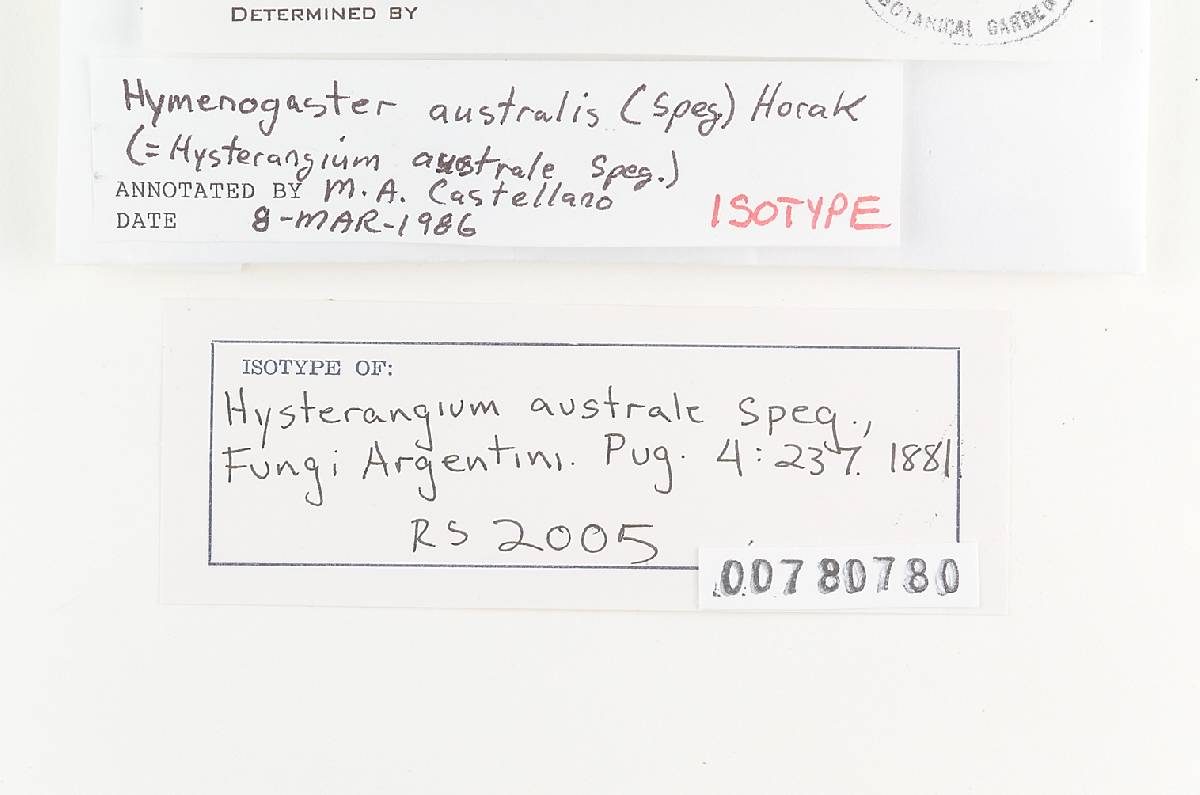 DETERMINED BY
BOTANICAL GARDEN
Hymenogaster australis (Speg) Horak
(= Hysterangium australe Speg.)
ANNOTATED BY M. A. Castellano
DATE 8-MAR-1986
ISOTYPE
ISOTYPE OF:
Hysterangium australe Speg.,
Fungi Argentini. Pug. 4: 237. 1881.
RS 2005
00780780